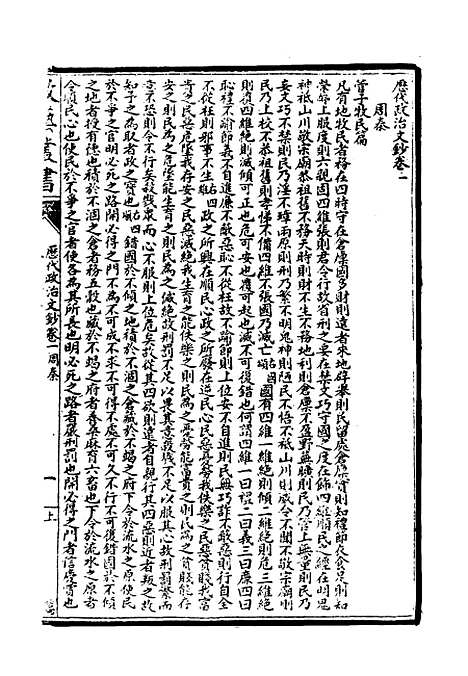 歷代政治文鈔卷一
周秦
管子牧民篇
凡有地牧民者務在四時守在倉廩國多財則遠者來地辟舉則民留處倉廩實則知禮節衣食足則知
榮辱上服度則六親固四維張則君令行故省刑之要在禁文巧守國之度在飾四維順民之經在明鬼
神祗山川敬宗廟恭祖舊不務天時則財不生不務地利則倉廩不盈野蕪曠則民乃菅上無量則民乃
妄文巧不禁則民乃淫不璋兩原則刑乃繁不明鬼神則陋民不悟不祗山川則威令不聞不敬宗廟則
民乃上校不恭祖舊則孝悌不備四維不張國乃滅亡右國頌國有四維一維絕則傾二維絕則危三維絕
則覆四維絕則滅傾可正也危可安也覆可起也滅不可復錯也何謂四維一曰禮二曰義三曰廉四曰
恥禮不踰節義不自進廉不蔽惡恥不從枉故不踰節則上位安不自進則民無巧詐不蔽惡則行自全
不從枉則邪事不生右四維政之所興在順民心政之所廢在逆民心民惡憂勞我佚樂之民惡貧賤我富
貴之民惡危墜我存安之民惡滅絕我生育之能佚樂之則民為之憂勞能富貴之則民為之貧賤能存
安之則民為之危墜能生育之則民為之滅絕故刑罰不足以畏其意殺戮不足以服其心故刑罰繁而
意不恐則令不行矣殺戮衆而心不服則上位危矣故從其四欲則遠者自親行其四惡則近者叛之故
知予之為取者政之寶也右四順錯國於不傾之地積於不涸之倉藏於不竭之府下令於流水之原使民
於不爭之官明必死之路開必得之門不為不可成不求不可得不處不可久不行不可復錯國於不傾
之地者授有德也積於不涸之倉者務五穀也藏於不竭之府者養桑麻育六畜也下令於流水之原者
令順民心也使民於不爭之官者使各為其所長也明必死之路者嚴刑罰也開必得之門者信慶賞也
叢書
歷代政治文鈔卷一 周秦
一 上